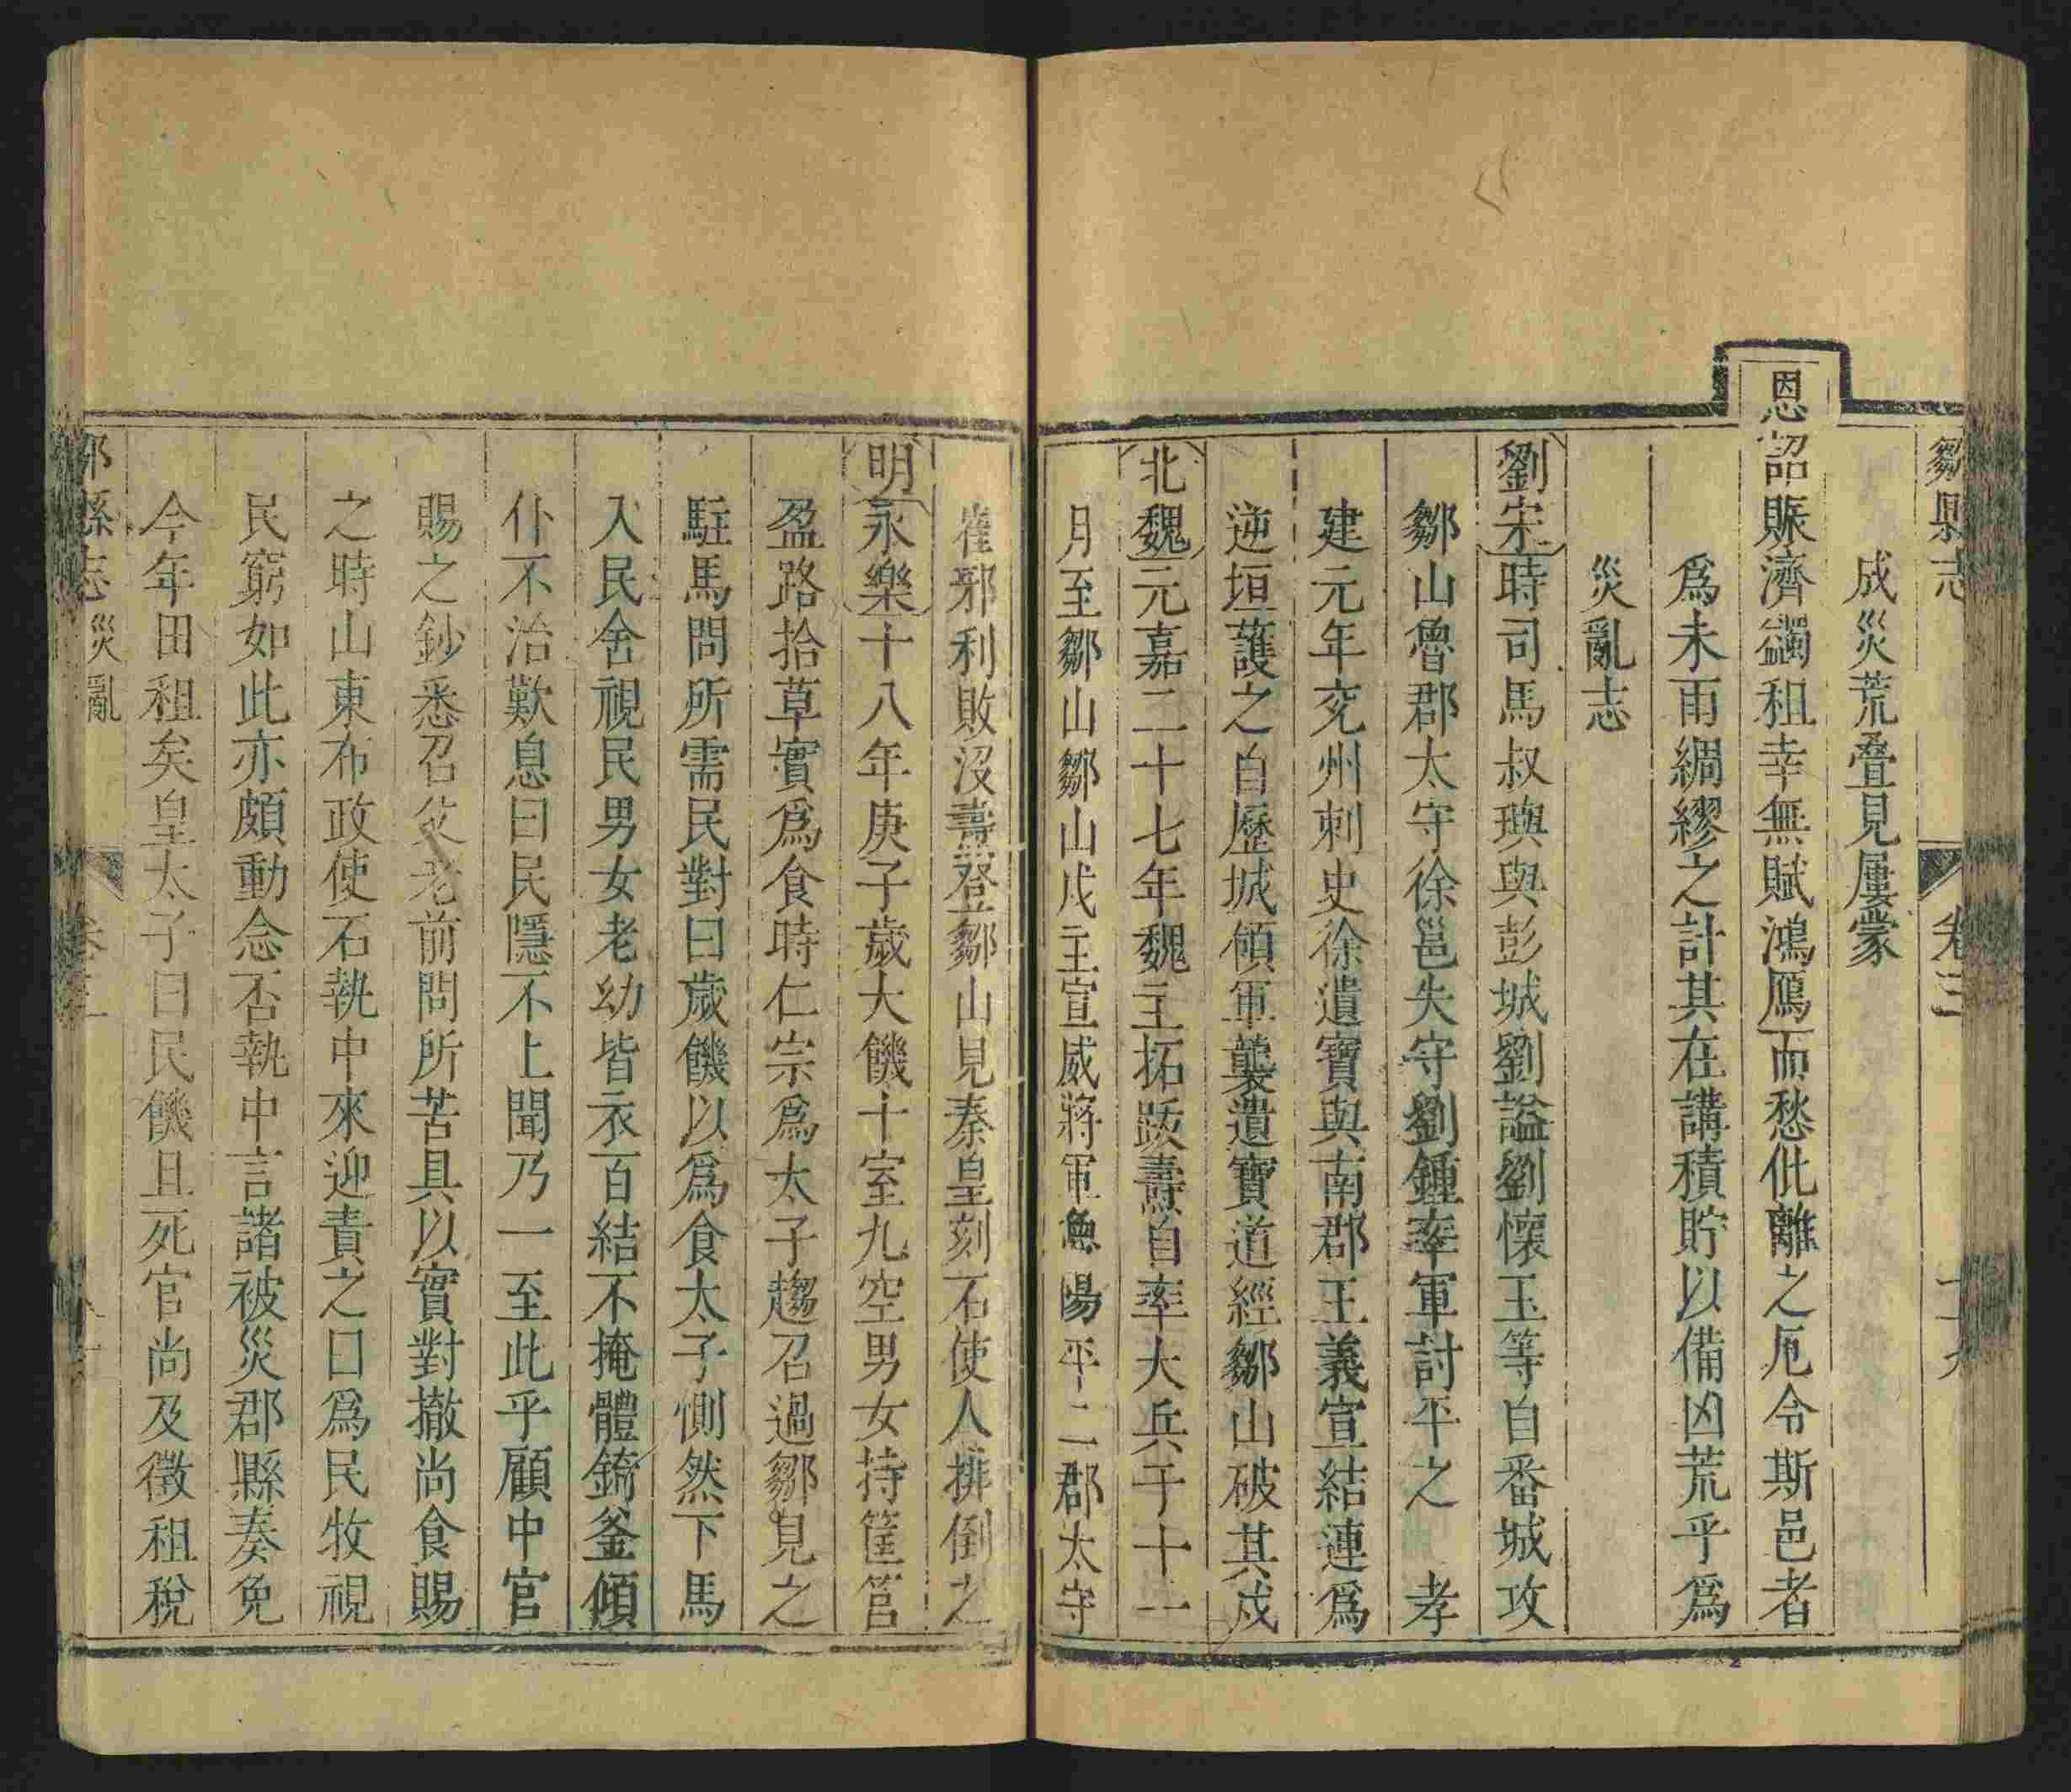 鄒縣志 卷三
成災荒叠見屢蒙
恩詔賑濟蠲租幸無賦鴻鴈而愁仳離之厄令斯邑者
爲未雨綢繆之計其在講積貯以備凶荒乎爲
災亂志
劉宋時司馬叔璵與彭城劉謐劉懷玉等自番城攻
鄒山魯郡太守徐邕失守劉鍾率軍討平之 孝
建元年兖州刺史徐遺寶與南郡王義宣結連爲
逆垣護之自歷城傾軍襲遺寶道經鄒山破其戍
北魏元嘉二十七年魏主拓跋燾自率大兵于十一
月至鄒山鄒山戍主宣威將軍魯陽平二郡太守
崔邪利敗没壽登鄒山見秦皇刻石使人排倒之
明永樂十八年庚子歲大饑十室九空男女持筐筥
盈路拾草實爲食時仁宗爲太子趨召過鄒見之
駐馬問所需民對曰歲饑以爲食太子惻然下馬
入民舍視民男女老幼皆衣百結不掩體錡釜傾
仆不治歎息曰民隱不上聞乃一至此乎顧中官
賜之鈔悉召父老前問所苦具以實對撤尚食賜
之時山東布政使石執中來迎責之曰爲民牧視
民窮如此亦頗動念否執中言諸被災郡縣奏免
今年田租矣皇太子曰民饑且死官尚及徵租稅
縣志 災亂